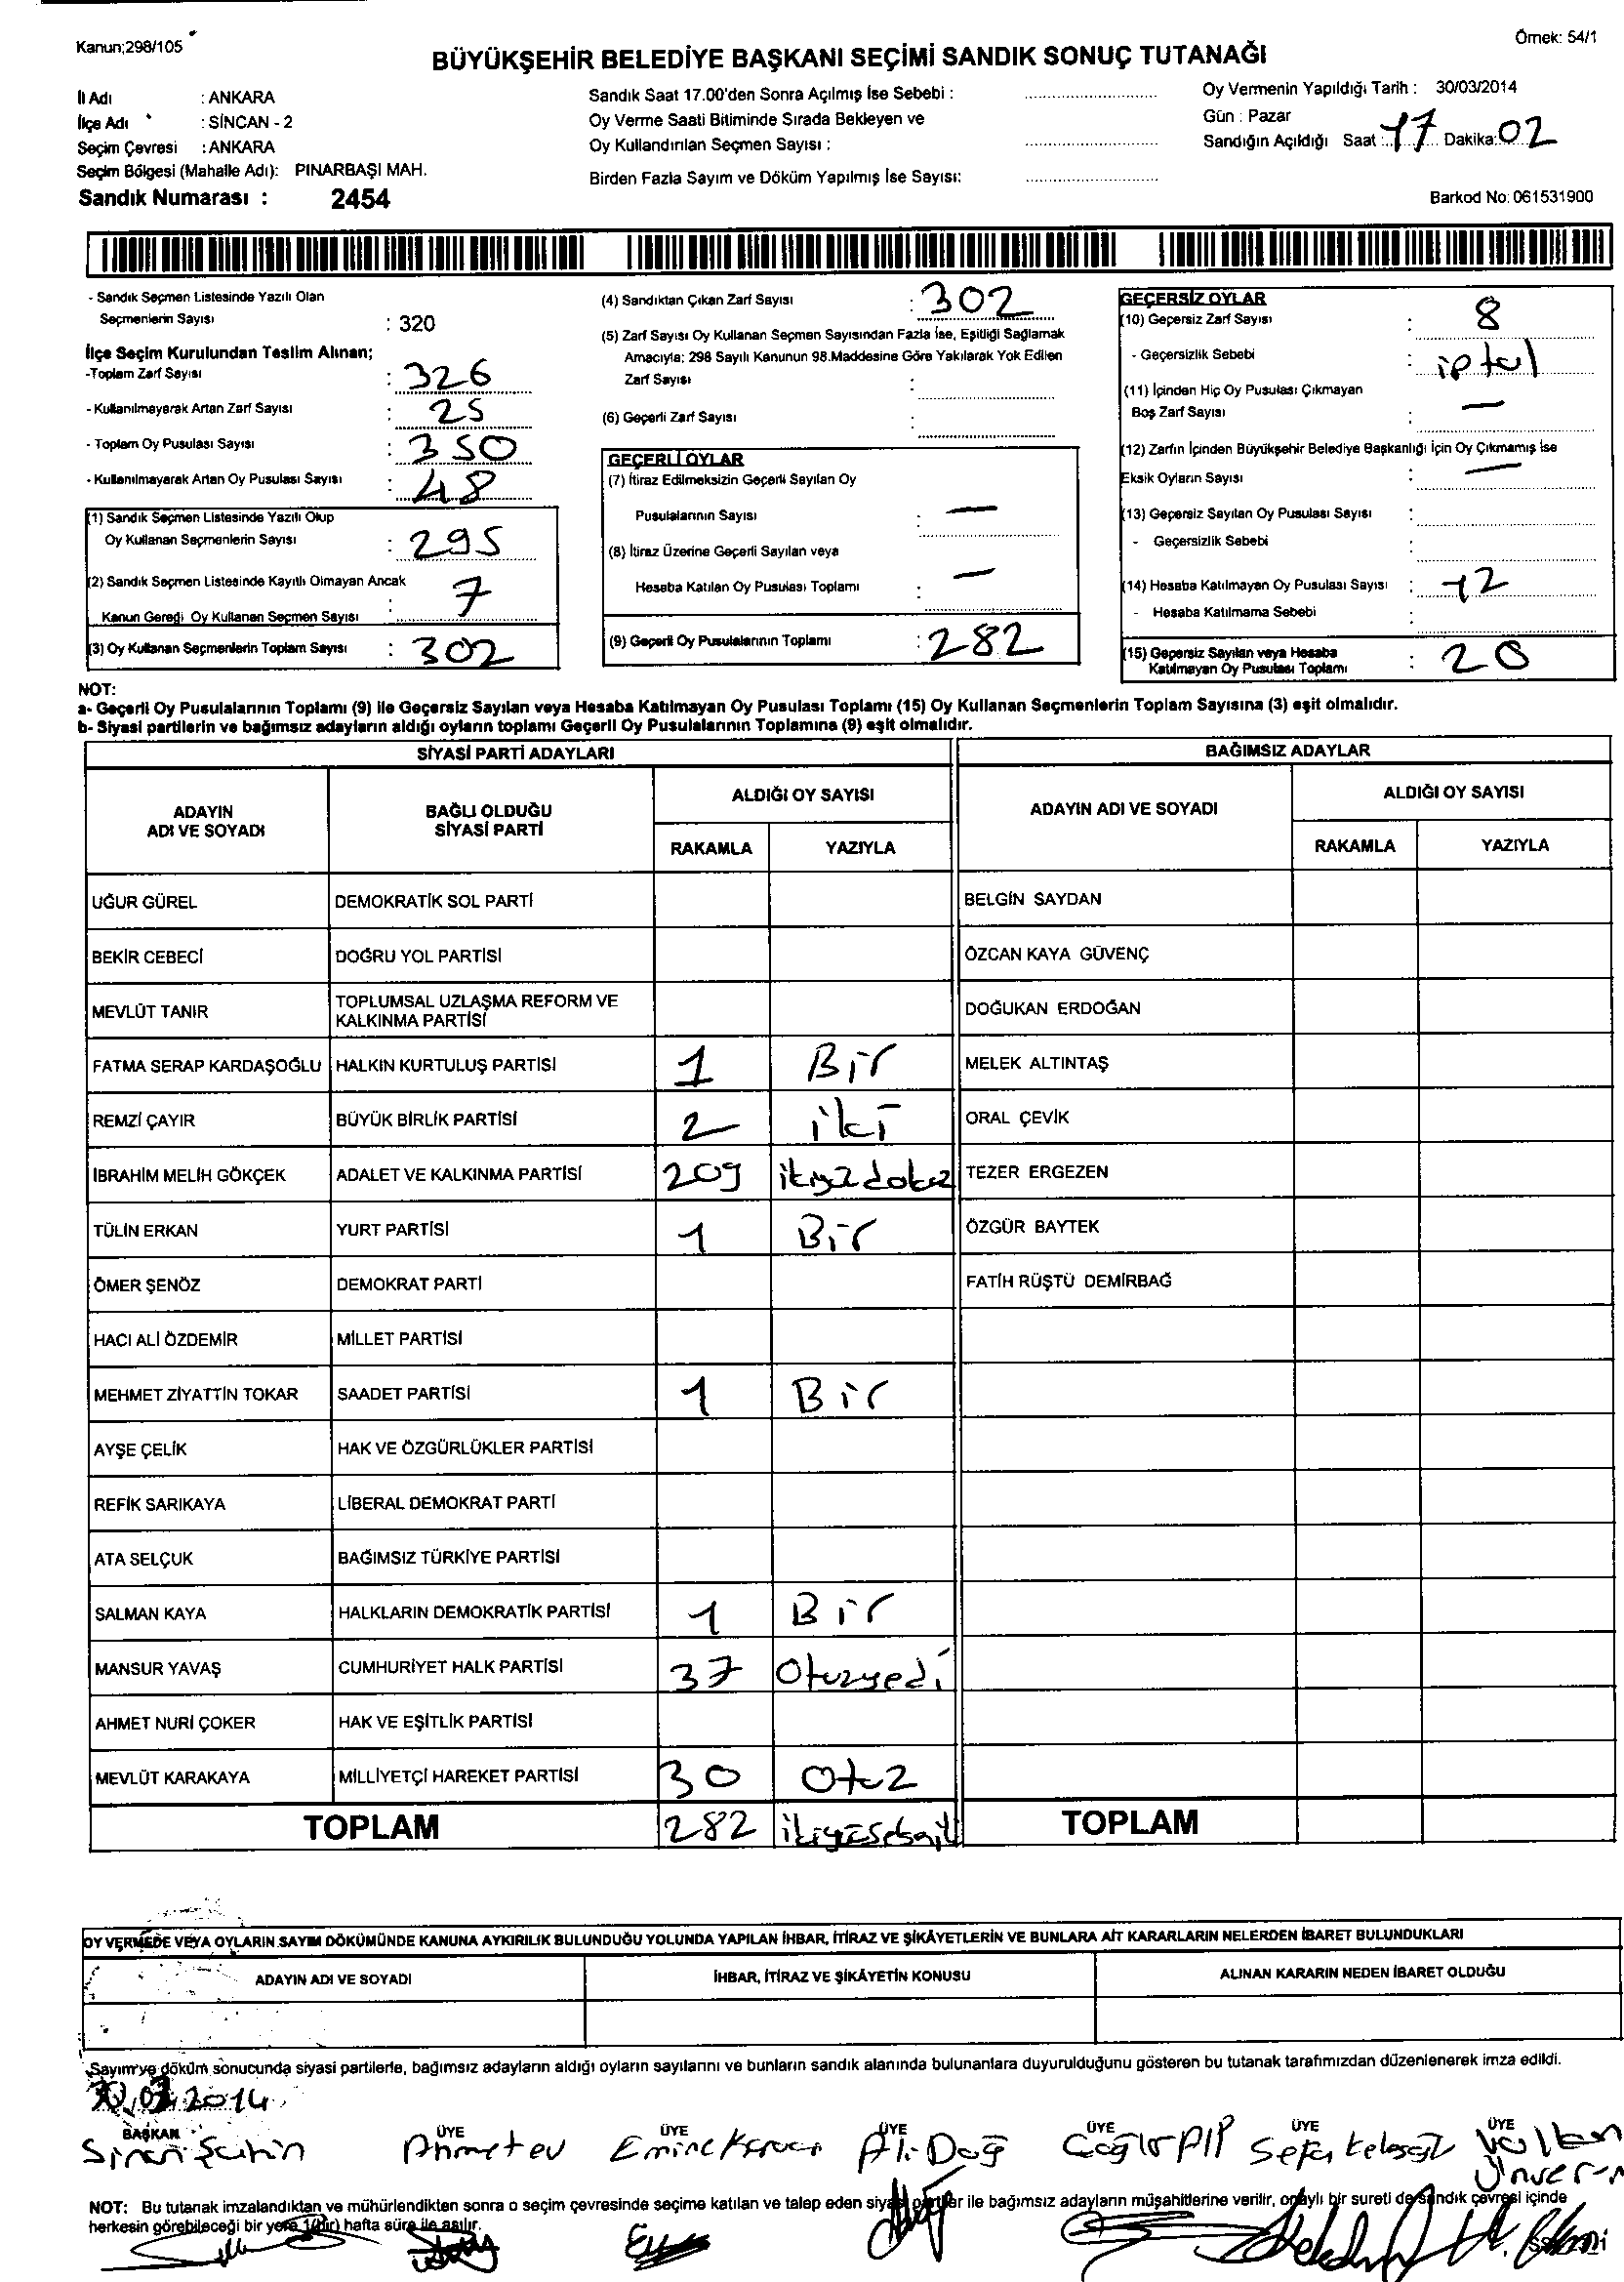 Kanun;298/105
Örnek: 54/1
BÜYÜKŞEHİR BELEDİYE BAŞKANI SEÇİMİ SANDIK SONUÇ TUTANAĞI
İl Adı : ANKARA
İlçe Adı : SİNCAN - 2
Seçim Çevresi : ANKARA
Seçim Bölgesi (Mahalle Adı): PINARBAŞI MAH.
Sandık Numarası : 2454
Sandık Saat 17.00'den Sonra Açılmış İse Sebebi :
Oy Verme Saati Bitiminde Sırada Bekleyen ve
Oy Kullandırılan Seçmen Sayısı :
Birden Fazla Sayım ve Döküm Yapılmış İse Sayısı:
Oy Vermenin Yapıldığı Tarih : 30/03/2014
Gün : Pazar
Sandığın Açıldığı Saat : 17 Dakika: 02
Barkod No: 061531900
- Sandık Seçmen Listesinde Yazılı Olan
Seçmenlerin Sayısı : 320
İlçe Seçim Kurulundan Teslim Alınan;
-Toplam Zarf Sayısı : 326
- Kullanılmayarak Artan Zarf Sayısı : 25
- Toplam Oy Pusulası Sayısı : 350
- Kullanılmayarak Artan Oy Pusulası Sayısı : 48
(1) Sandık Seçmen Listesinde Yazılı Olup
Oy Kullanan Seçmenlerin Sayısı : 295
(2) Sandık Seçmen Listesinde Kayıtlı Olmayan Ancak
Kanun Gereği Oy Kullanan Seçmen Sayısı : 7
(3) Oy Kullanan Seçmenlerin Toplam Sayısı : 302
(4) Sandıktan Çıkan Zarf Sayısı : 302
(5) Zarf Sayısı Oy Kullanan Seçmen Sayısından Fazla İse, Eşitliği Sağlamak
Amacıyla; 298 Sayılı Kanunun 98.Maddesine Göre Yakılarak Yok Edilen
Zarf Sayısı :
(6) Geçerli Zarf Sayısı :
GEÇERLİ OYLAR
(7) İtiraz Edilmeksizin Geçerli Sayılan Oy
Pusulalarının Sayısı : —
(8) İtiraz Üzerine Geçerli Sayılan veya
Hesaba Katılan Oy Pusulası Toplamı : —
(9) Geçerli Oy Pusulalarının Toplamı : 282
GEÇERSİZ OYLAR
(10) Geçersiz Zarf Sayısı : 8
- Geçersizlik Sebebi : iptal
(11) İçinden Hiç Oy Pusulası Çıkmayan
Boş Zarf Sayısı : —
(12) Zarfın İçinden Büyükşehir Belediye Başkanlığı İçin Oy Çıkmamış İse
Eksik Oyların Sayısı : —
(13) Geçersiz Sayılan Oy Pusulası Sayısı :
- Geçersizlik Sebebi :
(14) Hesaba Katılmayan Oy Pusulası Sayısı : 12
- Hesaba Katılmama Sebebi :
(15) Geçersiz Sayılan veya Hesaba
Katılmayan Oy Pusulası Toplamı : 20
NOT:
a- Geçerli Oy Pusulalarının Toplamı (9) ile Geçersiz Sayılan veya Hesaba Katılmayan Oy Pusulası Toplamı (15) Oy Kullanan Seçmenlerin Toplam Sayısına (3) eşit olmalıdır.
b- Siyasi partilerin ve bağımsız adayların aldığı oyların toplamı Geçerli Oy Pusulalarının Toplamına (9) eşit olmalıdır.
SİYASİ PARTİ ADAYLARI BAĞIMSIZ ADAYLAR
ADAYIN ADI VE SOYADI BAĞLI OLDUĞU SİYASİ PARTİ ALDIĞI OY SAYISI ADAYIN ADI VE SOYADI ALDIĞI OY SAYISI
RAKAMLA YAZIYLA RAKAMLA YAZIYLA
UĞUR GÜREL DEMOKRATİK SOL PARTİ BELGİN SAYDAN
BEKİR CEBECİ DOĞRU YOL PARTİSİ ÖZCAN KAYA GÜVENÇ
MEVLÜT TANIR TOPLUMSAL UZLAŞMA REFORM VE KALKINMA PARTİSİ DOĞUKAN ERDOĞAN
FATMA SERAP KARDAŞOĞLU HALKIN KURTULUŞ PARTİSİ 1 Bir MELEK ALTINTAŞ
REMZİ ÇAYIR BÜYÜK BİRLİK PARTİSİ 2 iki ORAL ÇEVİK
İBRAHİM MELİH GÖKÇEK ADALET VE KALKINMA PARTİSİ 209 ikiyüzdokuz TEZER ERGEZEN
TÜLİN ERKAN YURT PARTİSİ 1 Bir ÖZGÜR BAYTEK
ÖMER ŞENÖZ DEMOKRAT PARTİ FATİH RÜŞTÜ DEMİRBAĞ
HACI ALİ ÖZDEMİR MİLLET PARTİSİ
MEHMET ZİYATTİN TOKAR SAADET PARTİSİ 1 Bir
AYŞE ÇELİK HAK VE ÖZGÜRLÜKLER PARTİSİ
REFİK SARIKAYA LİBERAL DEMOKRAT PARTİ
ATA SELÇUK BAĞIMSIZ TÜRKİYE PARTİSİ
SALMAN KAYA HALKLARIN DEMOKRATİK PARTİSİ 1 Bir
MANSUR YAVAŞ CUMHURİYET HALK PARTİSİ 37 Otuzyedi
AHMET NURİ ÇOKER HAK VE EŞİTLİK PARTİSİ
MEVLÜT KARAKAYA MİLLİYETÇİ HAREKET PARTİSİ 30 Otuz
TOPLAM 282 TOPLAM
OY VERMEDE VEYA OYLARIN SAYIM DÖKÜMÜNDE KANUNA AYKIRILIK BULUNDUĞU YOLUNDA YAPILAN İHBAR, İTİRAZ VE ŞİKÂYETLERİN VE BUNLARA AİT KARARLARIN NELERDEN İBARET BULUNDUKLARI
ADAYIN ADI VE SOYADI İHBAR, İTİRAZ VE ŞİKÂYETİN KONUSU ALINAN KARARIN NEDEN İBARET OLDUĞU
Sayım ve döküm sonucunda siyasi partilerle, bağımsız adayların aldığı oyların sayılarını ve bunların sandık alanında bulunanlara duyurulduğunu gösteren bu tutanak tarafımızdan düzenlenerek imza edildi.
30.03.2014
BAŞKAN ÜYE ÜYE ÜYE ÜYE ÜYE ÜYE
Sinan Şahin Ahmet ev Emine Ali Dağ Çağlar Sefa Volkan
Ünver
NOT: Bu tutanak imzalandıktan ve mühürlendikten sonra o seçim çevresinde seçime katılan ve talep eden siyasi partiler ile bağımsız adayların müşahitlerine verilir, onaylı bir sureti de sandık çevresi içinde
herkesin görebileceği bir yere 1(bir) hafta süre ile asılır.